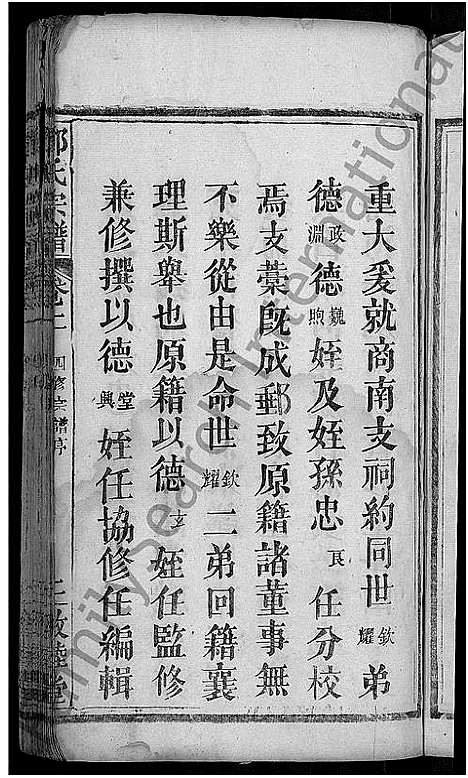 重大爰就商南支祠約同世欽耀弟
德政淵德巍煦姪及姪孫忠良任分校
焉支藁既成郵致原籍諸董事無
不樂從由是命世欽耀二弟回籍襄
理斯舉也原籍以德玄姪任監修
兼修撰以德堂興姪任協修任編輯
氏宗譜 四修宗譜序
FamilySearch International